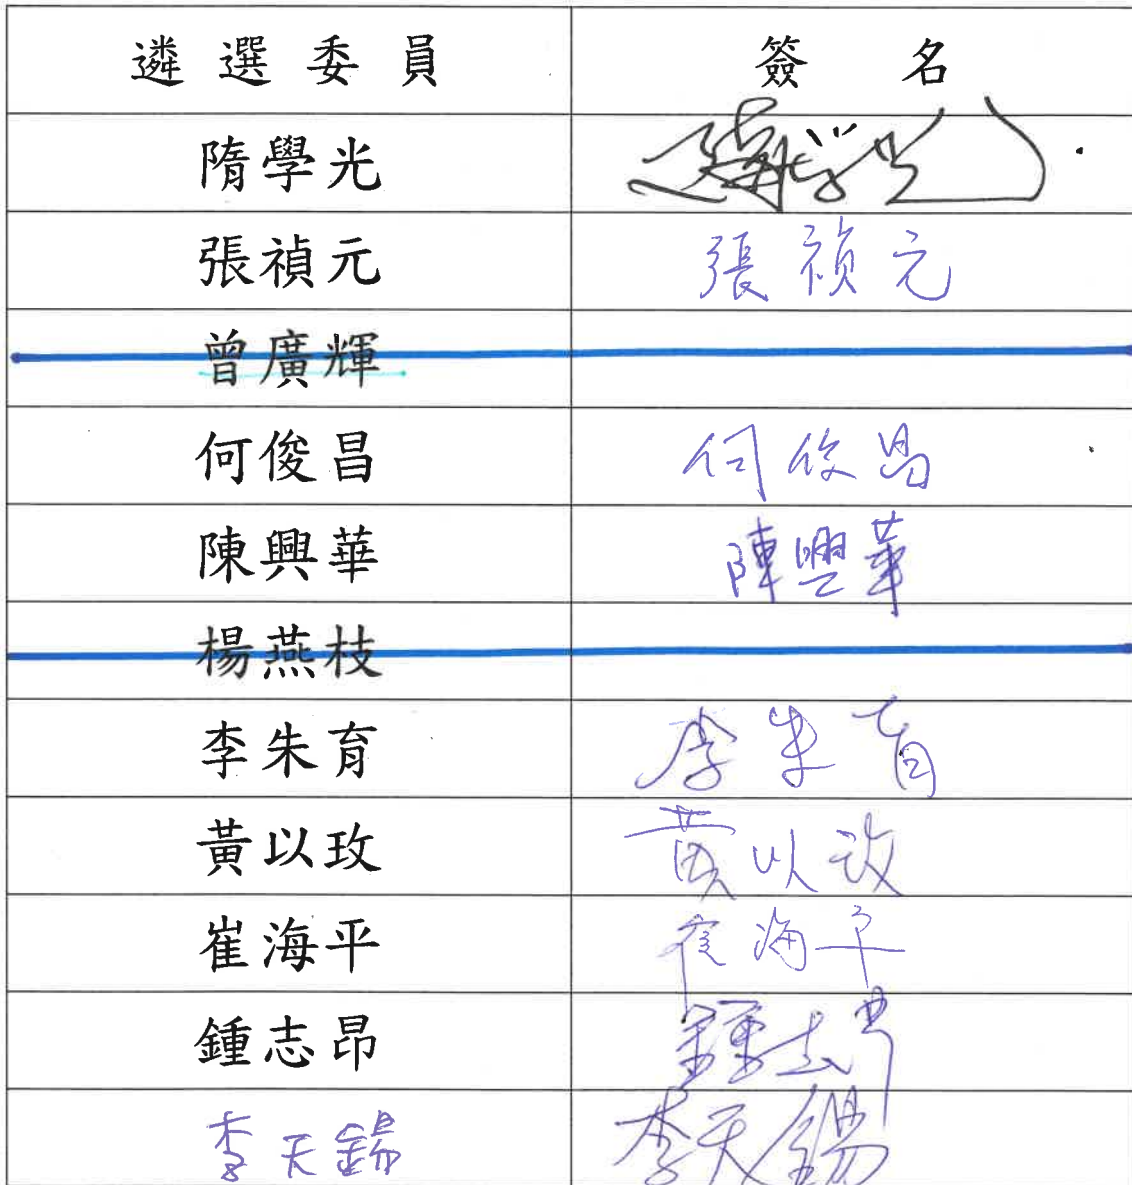 遴選委員 簽名
隋學光 隋学光
張禎元 張禎元
曾廣輝
何俊昌 何俊昌
陳興華 陳興華
楊燕枝
李朱育 李朱育
黃以玫 黃以玫
崔海平 崔海平
鍾志昂 鍾志昂
李天錫 李天錫